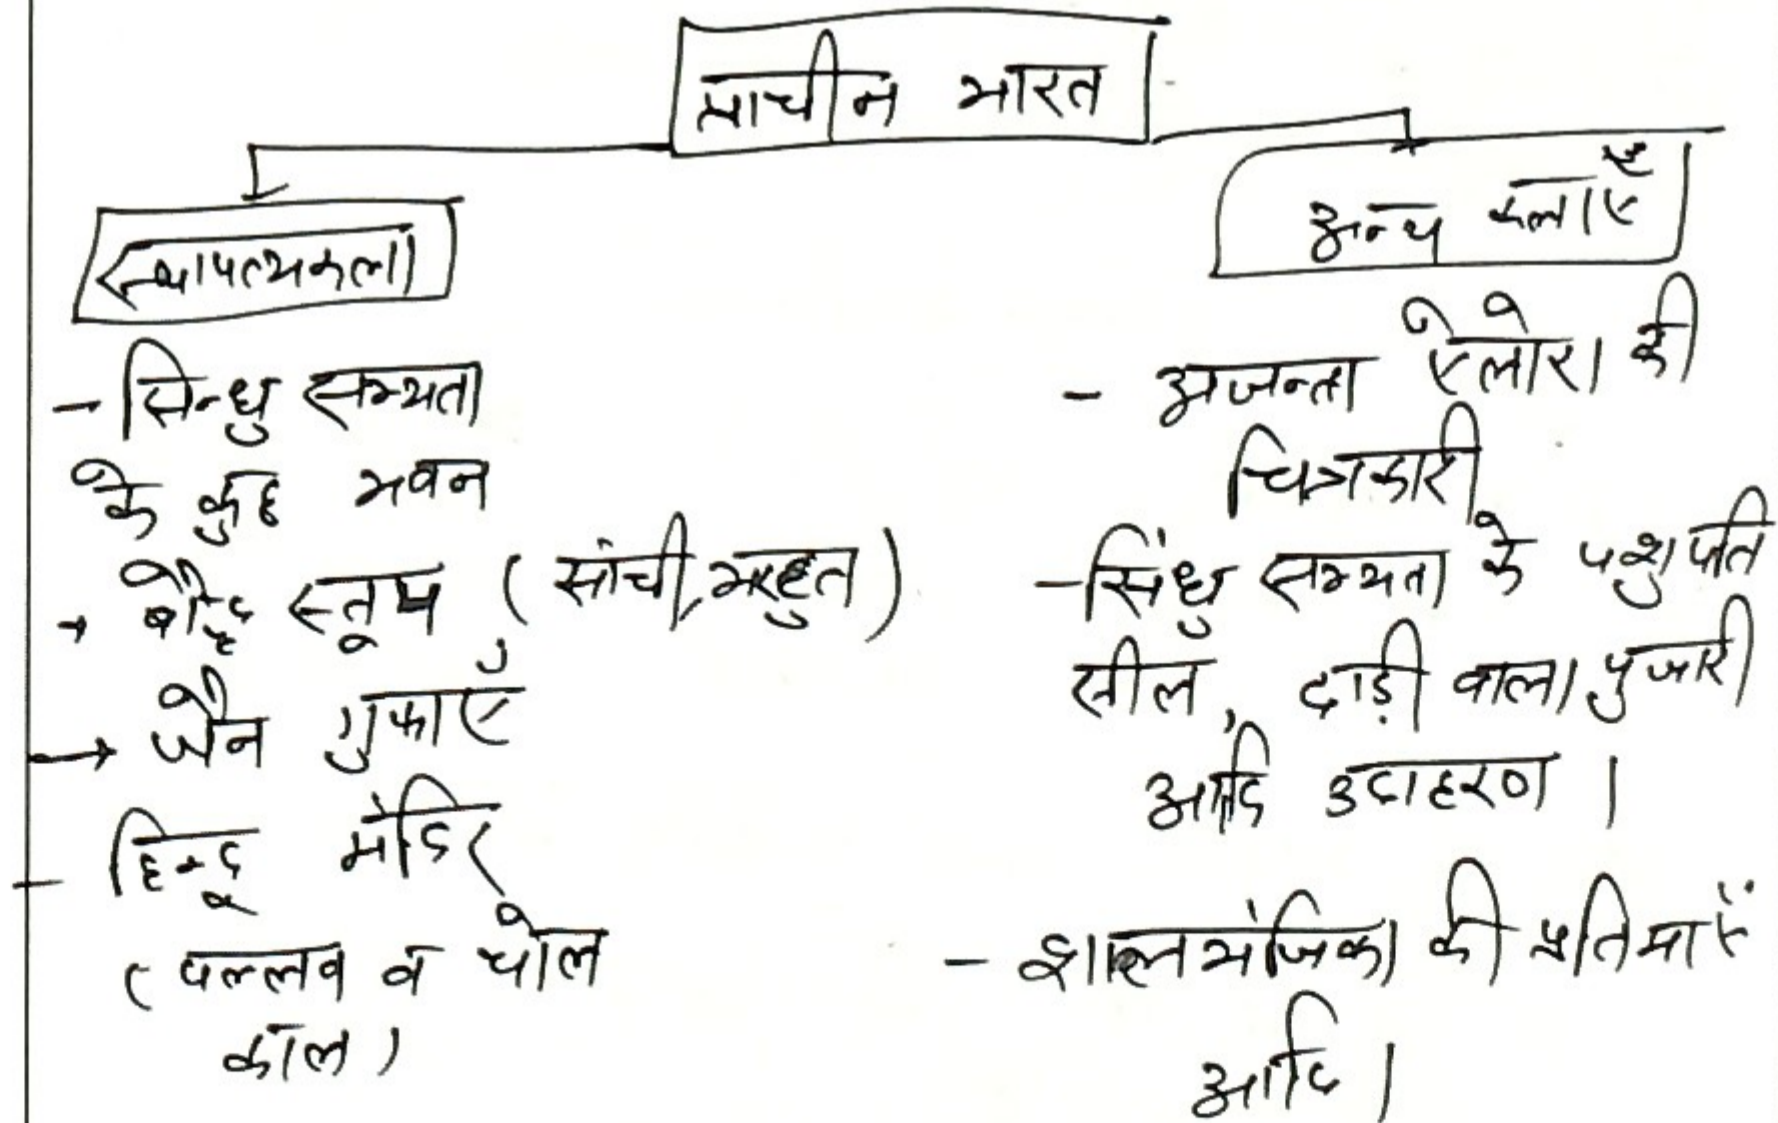 प्राचीन भारत
स्थापत्यकला
- सिन्धु सभ्यता
के कुछ भवन
→ बौद्ध स्तूप (सांची, भरहुत)
→ जैन गुफाएँ
- हिन्दू मंदिर
(पल्लव व चोल
काल)
अन्य कलाएँ
- अजन्ता ऐलोरा की
चित्रकारी
- सिंधु सभ्यता के पशुपति
सील, दाड़ी वाला पुजारी
आदि उदाहरण ।
- शालभंजिका की प्रतिमाएँ
आदि ।